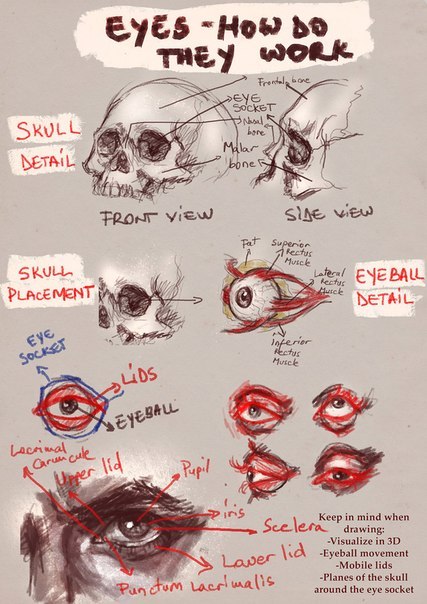 EYES - HOW DO
THEY WORK
SKULL
DETAIL
Frontal bone
EYE
SOCKET
Nasal
bone
Malar
bone
FRONT VIEW
SIDE VIEW
SKULL
PLACEMENT
Fat
Superior
Rectus
Muscle
Lateral
Rectus
Muscle
Inferior
Rectus
Muscle
EYEBALL
DETAIL
EYE
SOCKET
LIDS
EYEBALL
Lacrimal
Caruncule
Upper lid
Pupil
iris
Scelera
Lawer lid
Punctum Lacrimalis
Keep in mind when
drawing:
-Visualize in 3D
-Eyeball movement
-Mobile lids
-Planes of the skull
around the eye socket